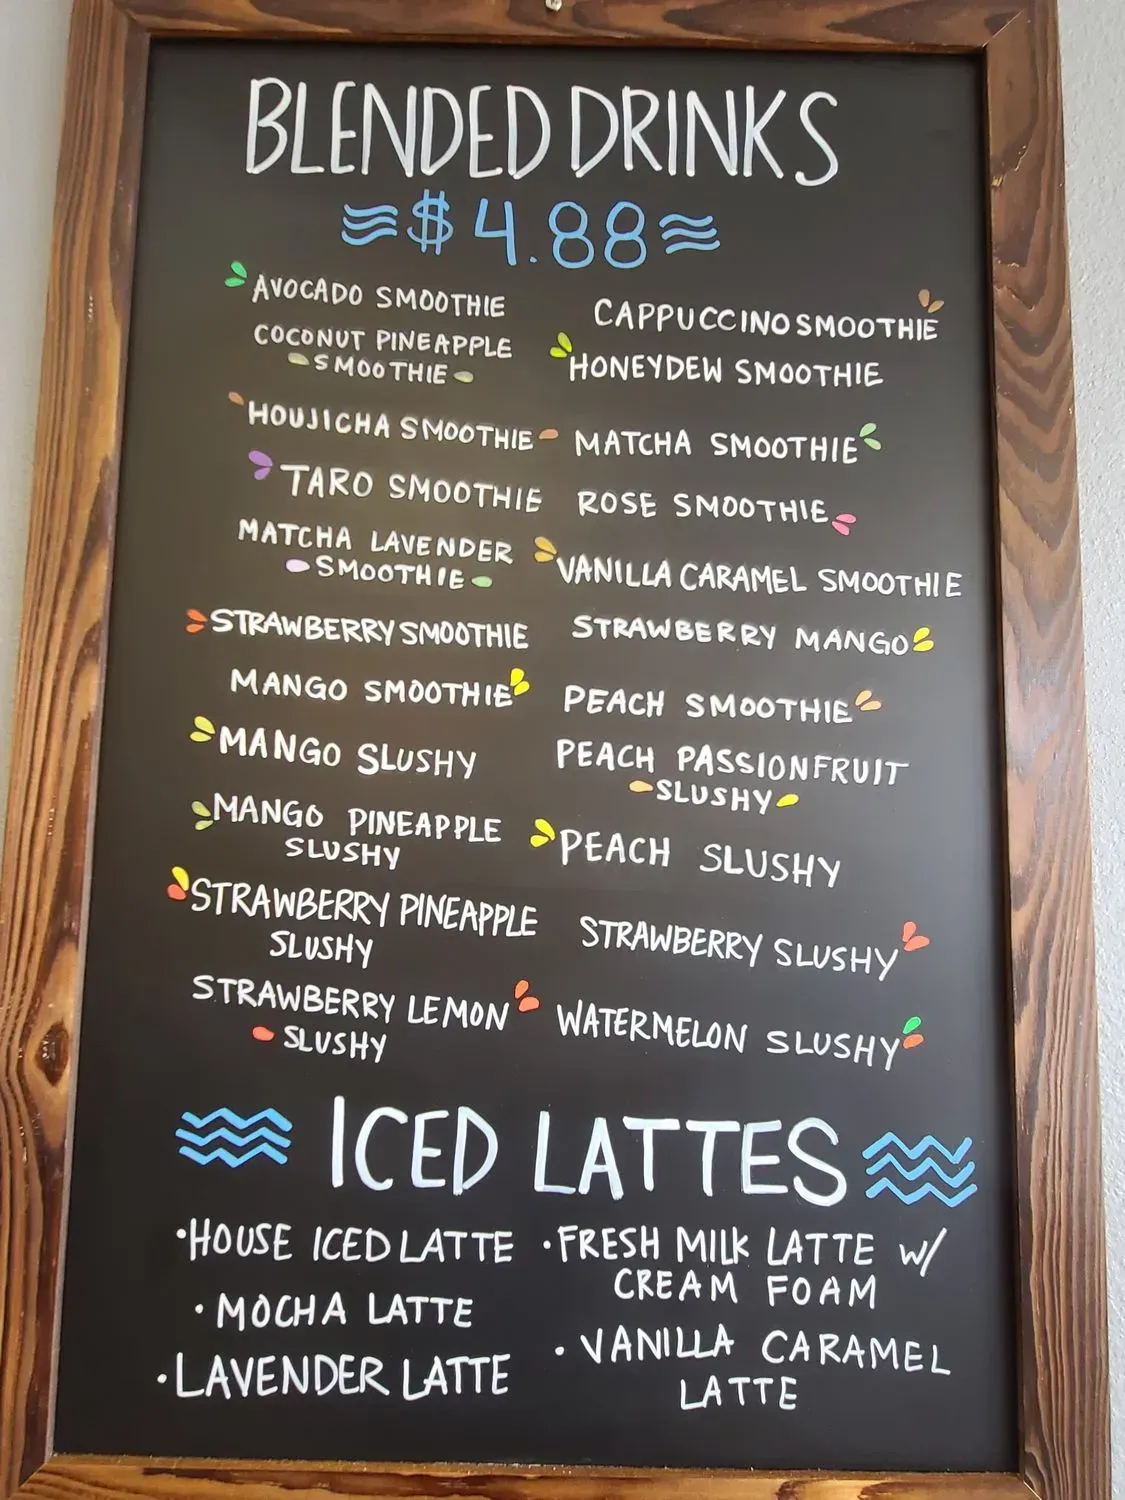 BLENDED DRINKS
$4.88
AVOCADO SMOOTHIE
CAPPUCCINO SMOOTHIE
COCONUT PINEAPPLE
SMOOTHIE
HONEYDEW SMOOTHIE
HOUJICHA SMOOTHIE
MATCHA SMOOTHIE
TARO SMOOTHIE
ROSE SMOOTHIE
MATCHA LAVENDER
SMOOTHIE
VANILLA CARAMEL SMOOTHIE
STRAWBERRY SMOOTHIE
STRAWBERRY MANGO
MANGO SMOOTHIE
PEACH SMOOTHIE
MANGO SLUSHY
PEACH PASSIONFRUIT
SLUSHY
MANGO PINEAPPLE
SLUSHY
PEACH SLUSHY
STRAWBERRY PINEAPPLE
SLUSHY
STRAWBERRY SLUSHY
STRAWBERRY LEMON
SLUSHY
WATERMELON SLUSHY
ICED LATTES
•HOUSE ICED LATTE
•FRESH MILK LATTE w/
CREAM FOAM
•MOCHA LATTE
•VANILLA CARAMEL
LATTE
•LAVENDER LATTE